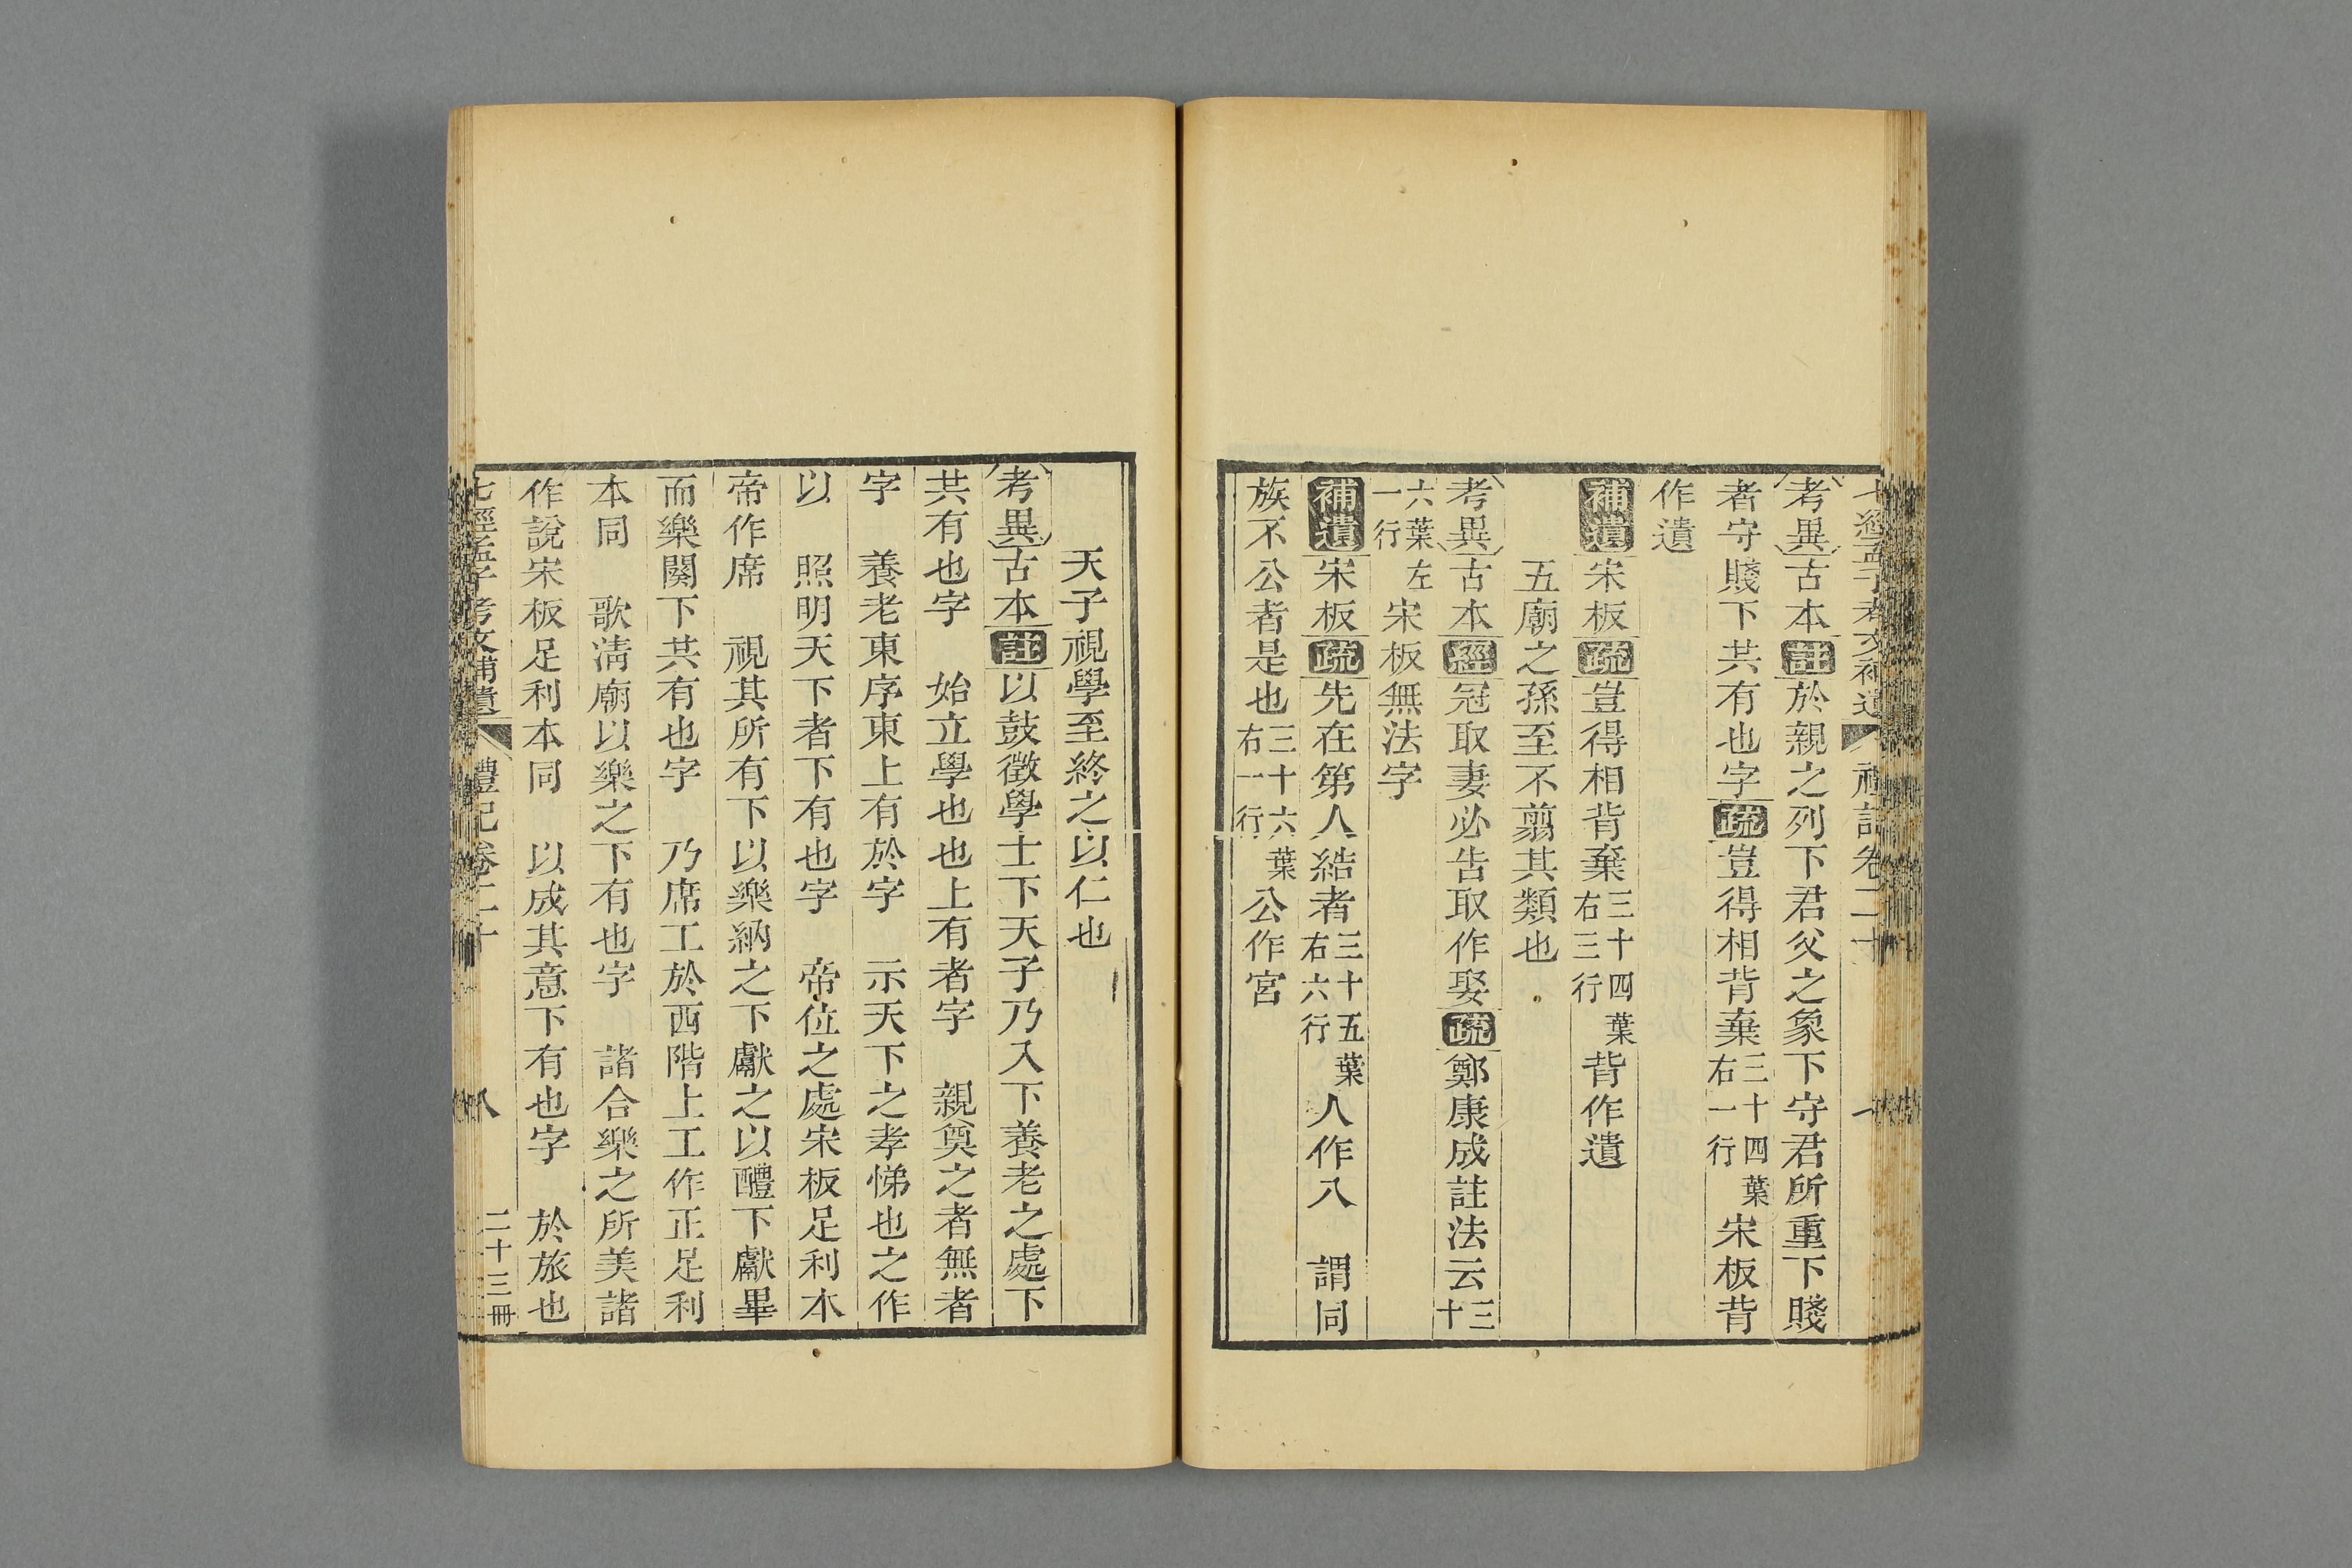 七經孟子考文補遺 禮記卷二十
考異古本註於親之列下君父之象下守君所重下賤
者守賤下共有也字疏豈得相背棄三十四葉右一行宋板背
作遺
補遺宋板疏豈得相背棄三十四葉右三行背作遺
五廟之孫至不翦其類也
考異古本經冠取妻必告取作娶疏鄭康成註法云三十
六葉左一行宋板無法字
補遺宋板疏先在第人結者三十五葉右六行人作八 謂同
族不公者是也三十六葉右一行公作宮
天子視學至終之以仁也
考異古本註以鼓徵學士下天子乃入下養老之處下
共有也字 始立學也也上有者字 親奠之者無者
字 養老東序東上有於字 示天下之孝悌也之作
以 照明天下者下有也字 帝位之處宋板足利本
帝作席 視其所有下以樂納之下獻之以醴下獻畢
而樂闋下共有也字 乃席工於西階上工作正足利
本同 歌淸廟以樂之下有也字 諸合樂之所美諸
作說宋板足利本同 以成其意下有也字 於旅也
七經孟子考文補遺 禮記卷二十 八 二十三冊